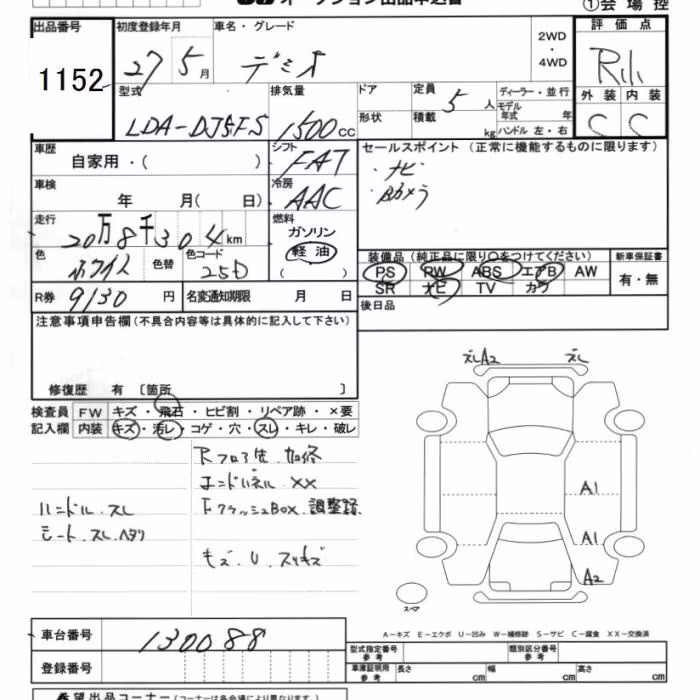 オークション出品申込書
①会場控
出品番号 1152
初度登録年月 27 5月
車名・グレード デミオ
2WD ・ 4WD
評価点
外装 C 内装 C
型式 LDA-DJ5FS
排気量 1500cc
ドア
形状
定員 5人
積載 kg
ディーラー・並行
モデル年式 年
ハンドル 左・右
車歴 自家用・( )
シフト FAT
冷房 AAC
セールスポイント(正常に機能するものに限ります)
・ナビ
・Bカメラ
車検 年 月( 日)
走行 20万8千304km
燃料 ガソリン 軽油 ( )
色 ホワイト 色替 色コード 25D
装備品(純正品に限り○をつけてください)
PS PW ABS エアB AW
SR ナビ TV カワ
新車保証書 有・無
R券 9130円 名変通知期限 月 日
後日品
注意事項申告欄(不具合内容等は具体的に記入して下さい)
修復歴 有 〔箇所 〕
検査員記入欄
FW キズ・飛石・ヒビ割・リペア跡・×要
内装 キズ・汚レ・コゲ・穴・スレ・キレ・破レ
Rフロア 加修
エンドパネル.XX
FクラッシュBOX.調整跡
ハンドル.スレ
シート.スレ.ヘタリ
キズ.U.スリキズ
ズレA2 ズレ
A1
A1
A2
スペア
A-キズ E-エクボ U-凹み W-補修跡 S-サビ C-腐食 XX-交換済
車台番号 130088
登録番号
型式指定番号 参考 類別区分番号 参考
車庫証明用 参考 長さ cm 幅 cm 高さ cm
希望出品コーナー(コーナーは各会場により異なります)